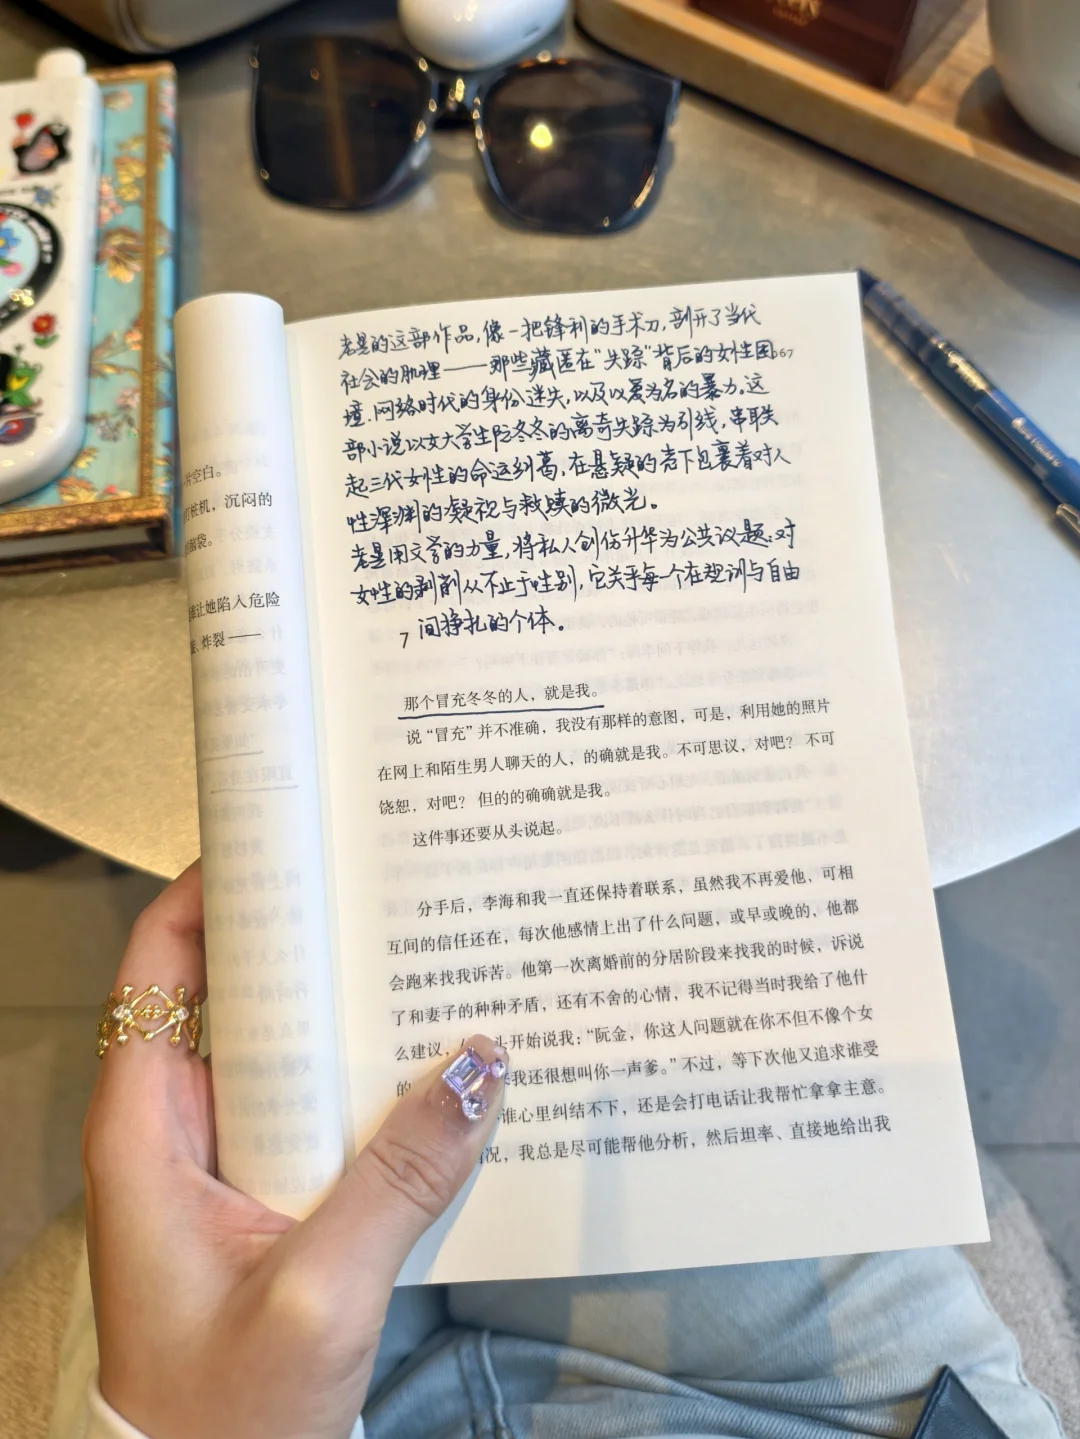 片空白。
打桩机，沉闷的
脑袋。
让她陷入危险
炸裂——
老晃的这部作品，像一把锋利的手术刀，剖开了当代
社会的肌理——那些藏匿在“失踪”背后的女性困
境、网络时代的身份迷失，以及以爱为名的暴力。这
部小说以女大学生阮冬冬的离奇失踪为引线，串联
起三代女性的命运纠葛，在悬疑的壳下包裹着对人
性深渊的凝视与救赎的微光。
老晃用文学的力量，将私人创伤升华为公共议题：对
女性的剥削从不止于性别，它关乎每一个在规训与自由
间挣扎的个体。
67
7
那个冒充冬冬的人，就是我。
说“冒充”并不准确，我没有那样的意图，可是，利用她的照片
在网上和陌生男人聊天的人，的确就是我。不可思议，对吧？不可
饶恕，对吧？但的的确确就是我。
这件事还要从头说起。
分手后，李海和我一直还保持着联系，虽然我不再爱他，可相
互间的信任还在，每次他感情上出了什么问题，或早或晚的，他都
会跑来找我诉苦。他第一次离婚前的分居阶段来找我的时候，诉说
了和妻子的种种矛盾，还有不舍的心情，我不记得当时我给了他什
么建议，头开始说我：“阮金，你这人问题就在你不但不像个女
的 来我还很想叫你一声爹。”不过，等下次他又追求谁受
谁心里纠结不下，还是会打电话让我帮忙拿拿主意。
情况，我总是尽可能帮他分析，然后坦率、直接地给出我